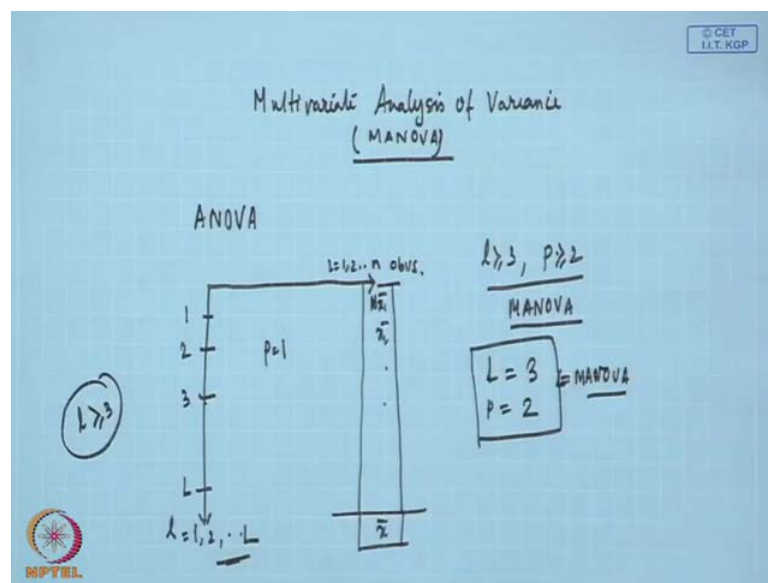 © CET
I.I.T. KGP
Multivariate Analysis of Variance
(MANOVA)
ANOVA
i=1,2..n obvs.
1
2
3
L
l = 1, 2, ..L
l ≥ 3
p=1
x̄₁
x̄₂
.
.
x̄
l ≥ 3, p ≥ 2
MANOVA
L = 3
P = 2
= MANOVA
NPTEL